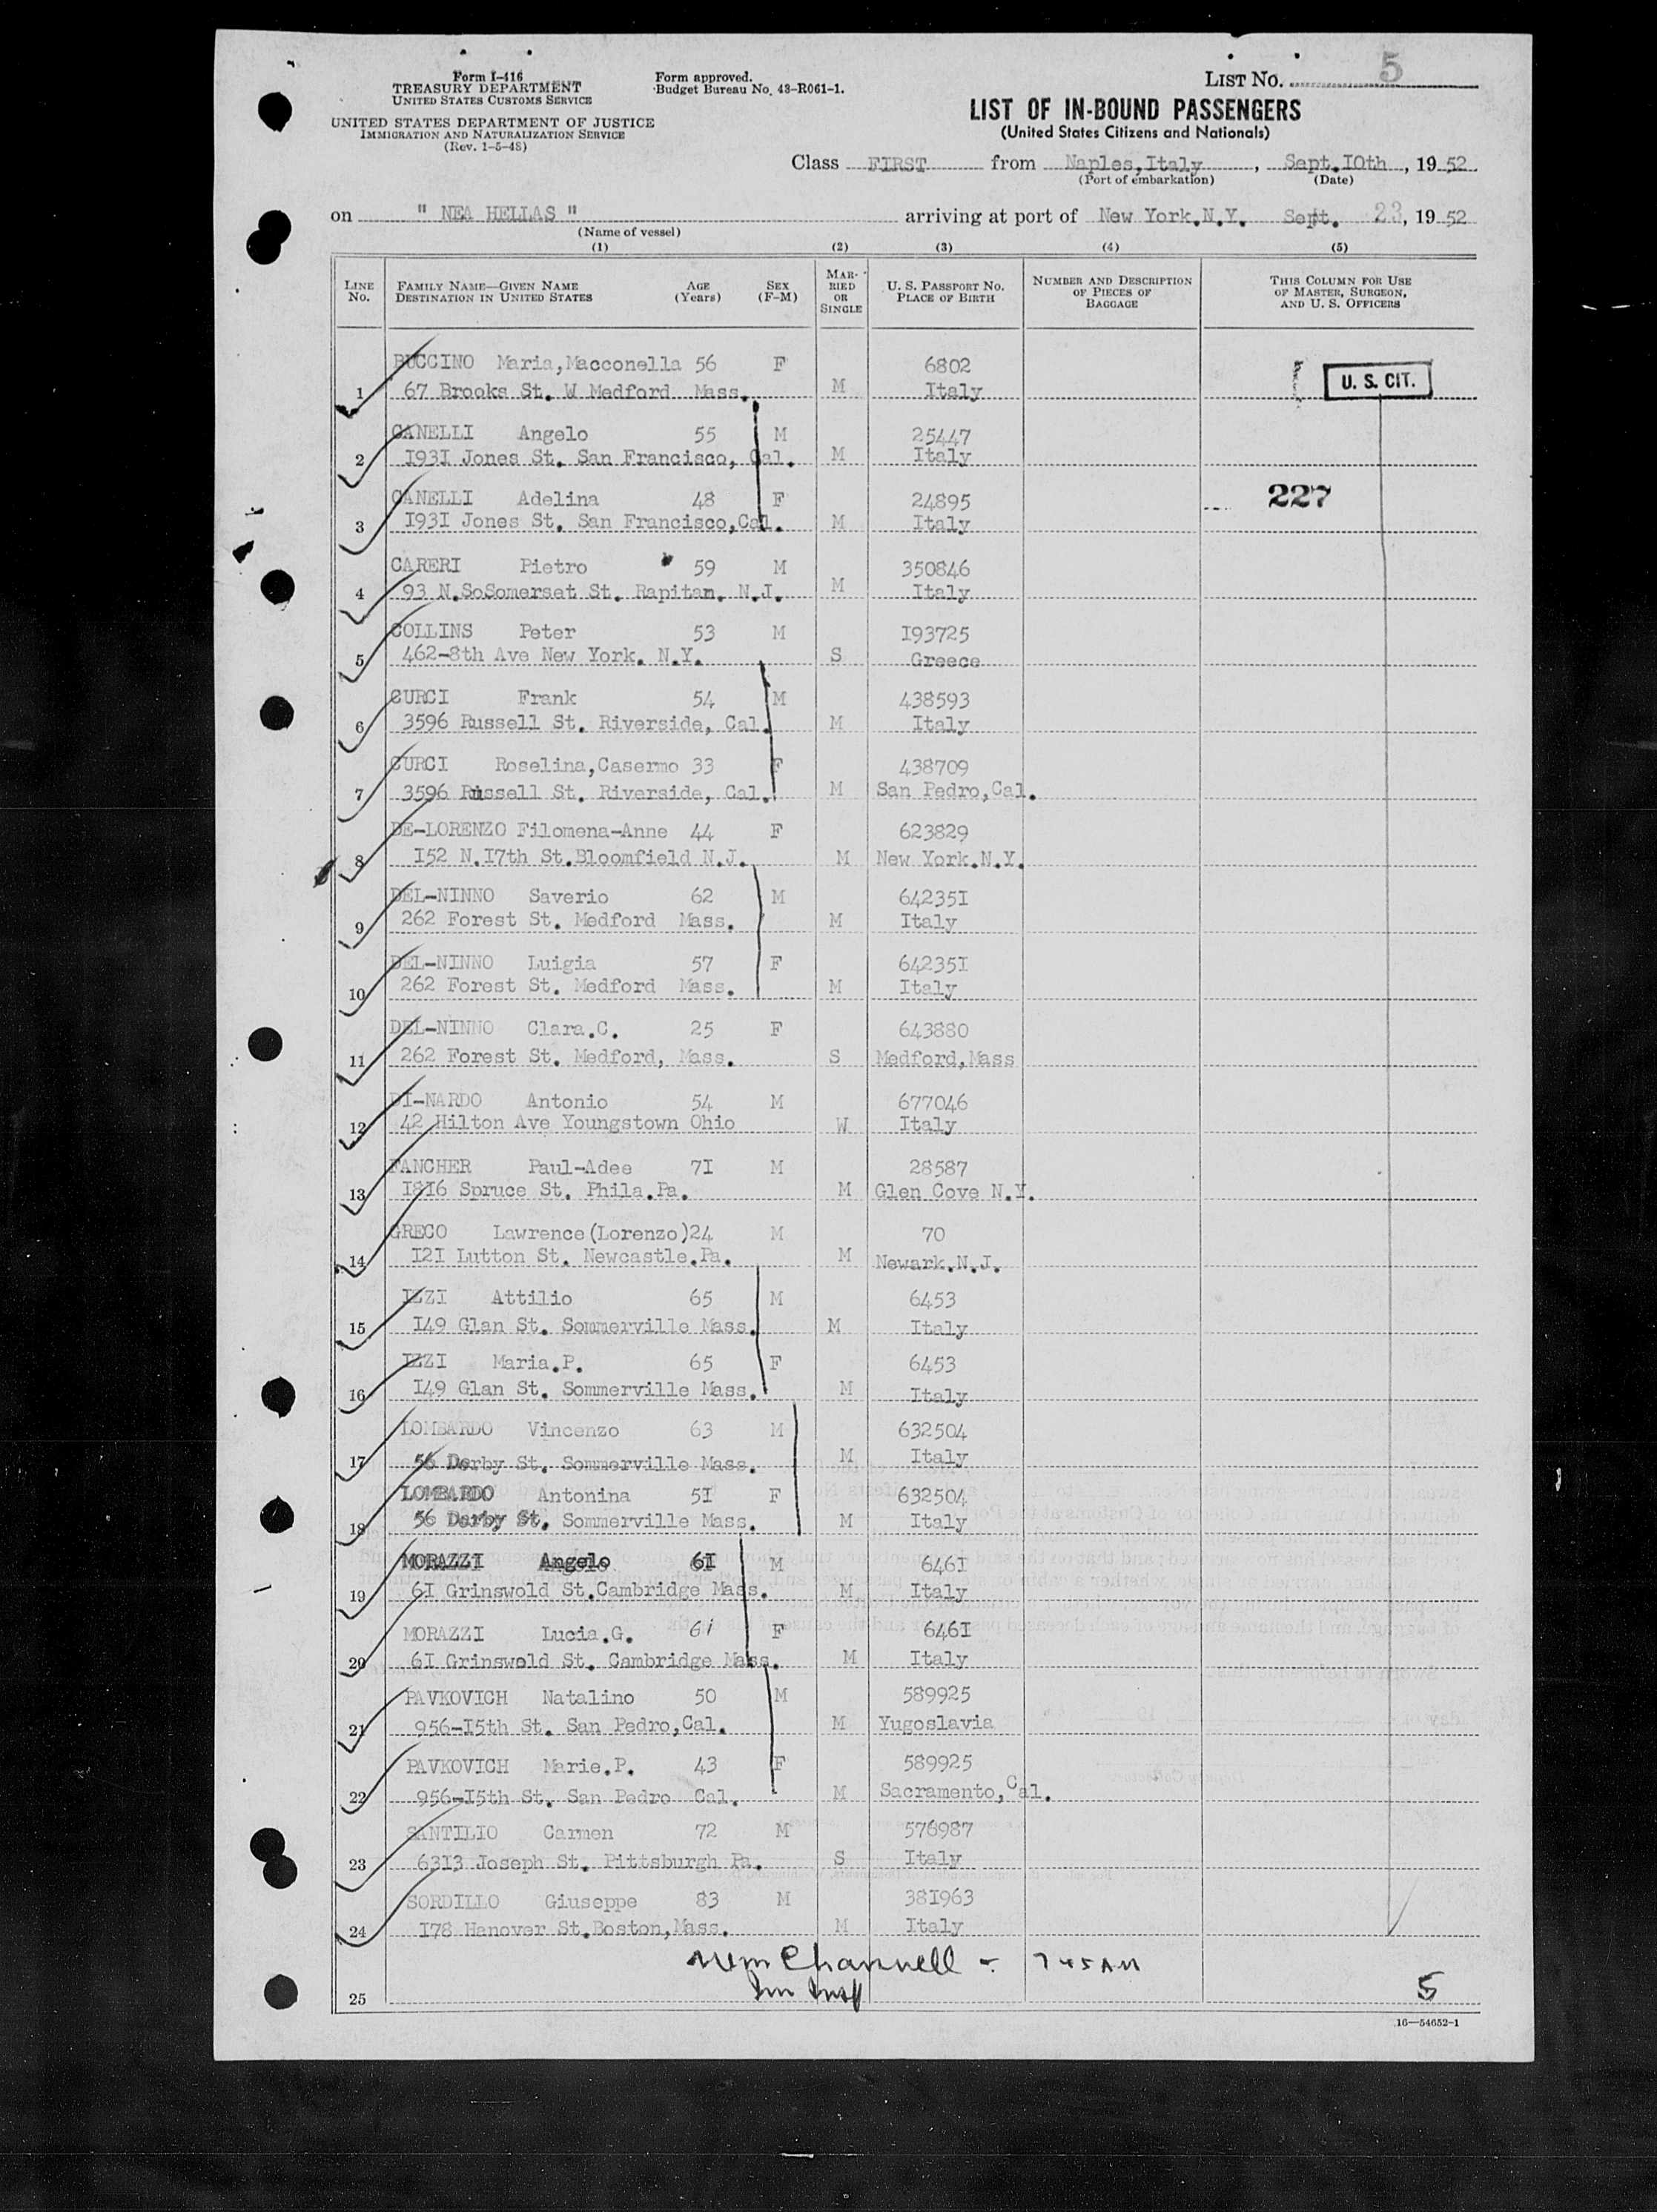 Form I-416
TREASURY DEPARTMENT
UNITED STATES CUSTOMS SERVICE
UNITED STATES DEPARTMENT OF JUSTICE
IMMIGRATION AND NATURALIZATION SERVICE
(Rev. 1-5-48)
Form approved.
Budget Bureau No. 43-R061-1.
LIST NO. 5
LIST OF IN-BOUND PASSENGERS
(United States Citizens and Nationals)
Class FIRST from Naples,Italy, Sept.IOth, 1952
(Port of embarkation) (Date)
on " NEA HELLAS " arriving at port of New York.N.Y. Sept. 23, 1952
(Name of vessel)
(1) (2) (3) (4) (5)
LINE NO. FAMILY NAME—GIVEN NAME DESTINATION IN UNITED STATES AGE (Years) SEX (F-M) MARRIED OR SINGLE U. S. PASSPORT NO. PLACE OF BIRTH NUMBER AND DESCRIPTION OF PIECES OF BAGGAGE THIS COLUMN FOR USE OF MASTER, SURGEON, AND U. S. OFFICERS
BUCCINO Maria,Macconella 56 F 6802
1 67 Brooks St. W Medford Mass. M Italy U. S. CIT.
CANELLI Angelo 55 M 25447
2 I93I Jones St. San Francisco, Cal. M Italy
CANELLI Adelina 48 F 24895 227
3 I93I Jones St. San Francisco,Cal. M Italy
CARERI Pietro 59 M 350846
4 93 N.SoSomerset St. Rapitan. N.J. M Italy
COLLINS Peter 53 M I93725
5 462-8th Ave New York. N.Y. S Greece
CURCI Frank 54 M 438593
6 3596 Russell St. Riverside, Cal. M Italy
CURCI Roselina,Casermo 33 F 438709
7 3596 Russell St. Riverside, Cal. M San Pedro,Cal.
DE-LORENZO Filomena-Anne 44 F 623829
8 I52 N.I7th St.Bloomfield N.J. M New York.N.Y.
DEL-NINNO Saverio 62 M 64235I
9 262 Forest St. Medford Mass. M Italy
DEL-NINNO Luigia 57 F 64235I
10 262 Forest St. Medford Mass. M Italy
DEL-NINNO Clara.C. 25 F 643880
11 262 Forest St. Medford, Mass. S Medford,Mass
DI-NARDO Antonio 54 M 677046
12 42 Hilton Ave Youngstown Ohio W Italy
FANCHER Paul-Adee 7I M 28587
13 I8I6 Spruce St. Phila.Pa. M Glen Cove N.Y.
GRECO Lawrence(Lorenzo)24 M 70
14 I2I Lutton St. Newcastle.Pa. M Newark.N.J.
IZZI Attilio 65 M 6453
15 I49 Glan St. Sommerville Mass. M Italy
IZZI Maria.P. 65 F 6453
16 I49 Glan St. Sommerville Mass. M Italy
LOMBARDO Vincenzo 63 M 632504
17 56 Derby St. Sommerville Mass. M Italy
LOMBARDO Antonina 5I F 632504
18 56 Derby St. Sommerville Mass. M Italy
MORAZZI Angelo 6I M 646I
19 6I Grinswold St.Cambridge Mass. M Italy
MORAZZI Lucia.G. 61 F 646I
20 6I Grinswold St. Cambridge Mass. M Italy
PAVKOVICH Natalino 50 M 589925
21 956-I5th St. San Pedro,Cal. M Yugoslavia
PAVKOVICH Marie.P. 43 F 589925
22 956-I5th St. San Pedro Cal. M Sacramento,Cal.
SANTILIO Carmen 72 M 576987
23 63I3 Joseph St. Pittsburgh Pa. S Italy
SORDILLO Giuseppe 83 M 38I963
24 I78 Hanover St.Boston,Mass. M Italy
Channell - 745 AM
Im Insp
25 5
16—54652-1